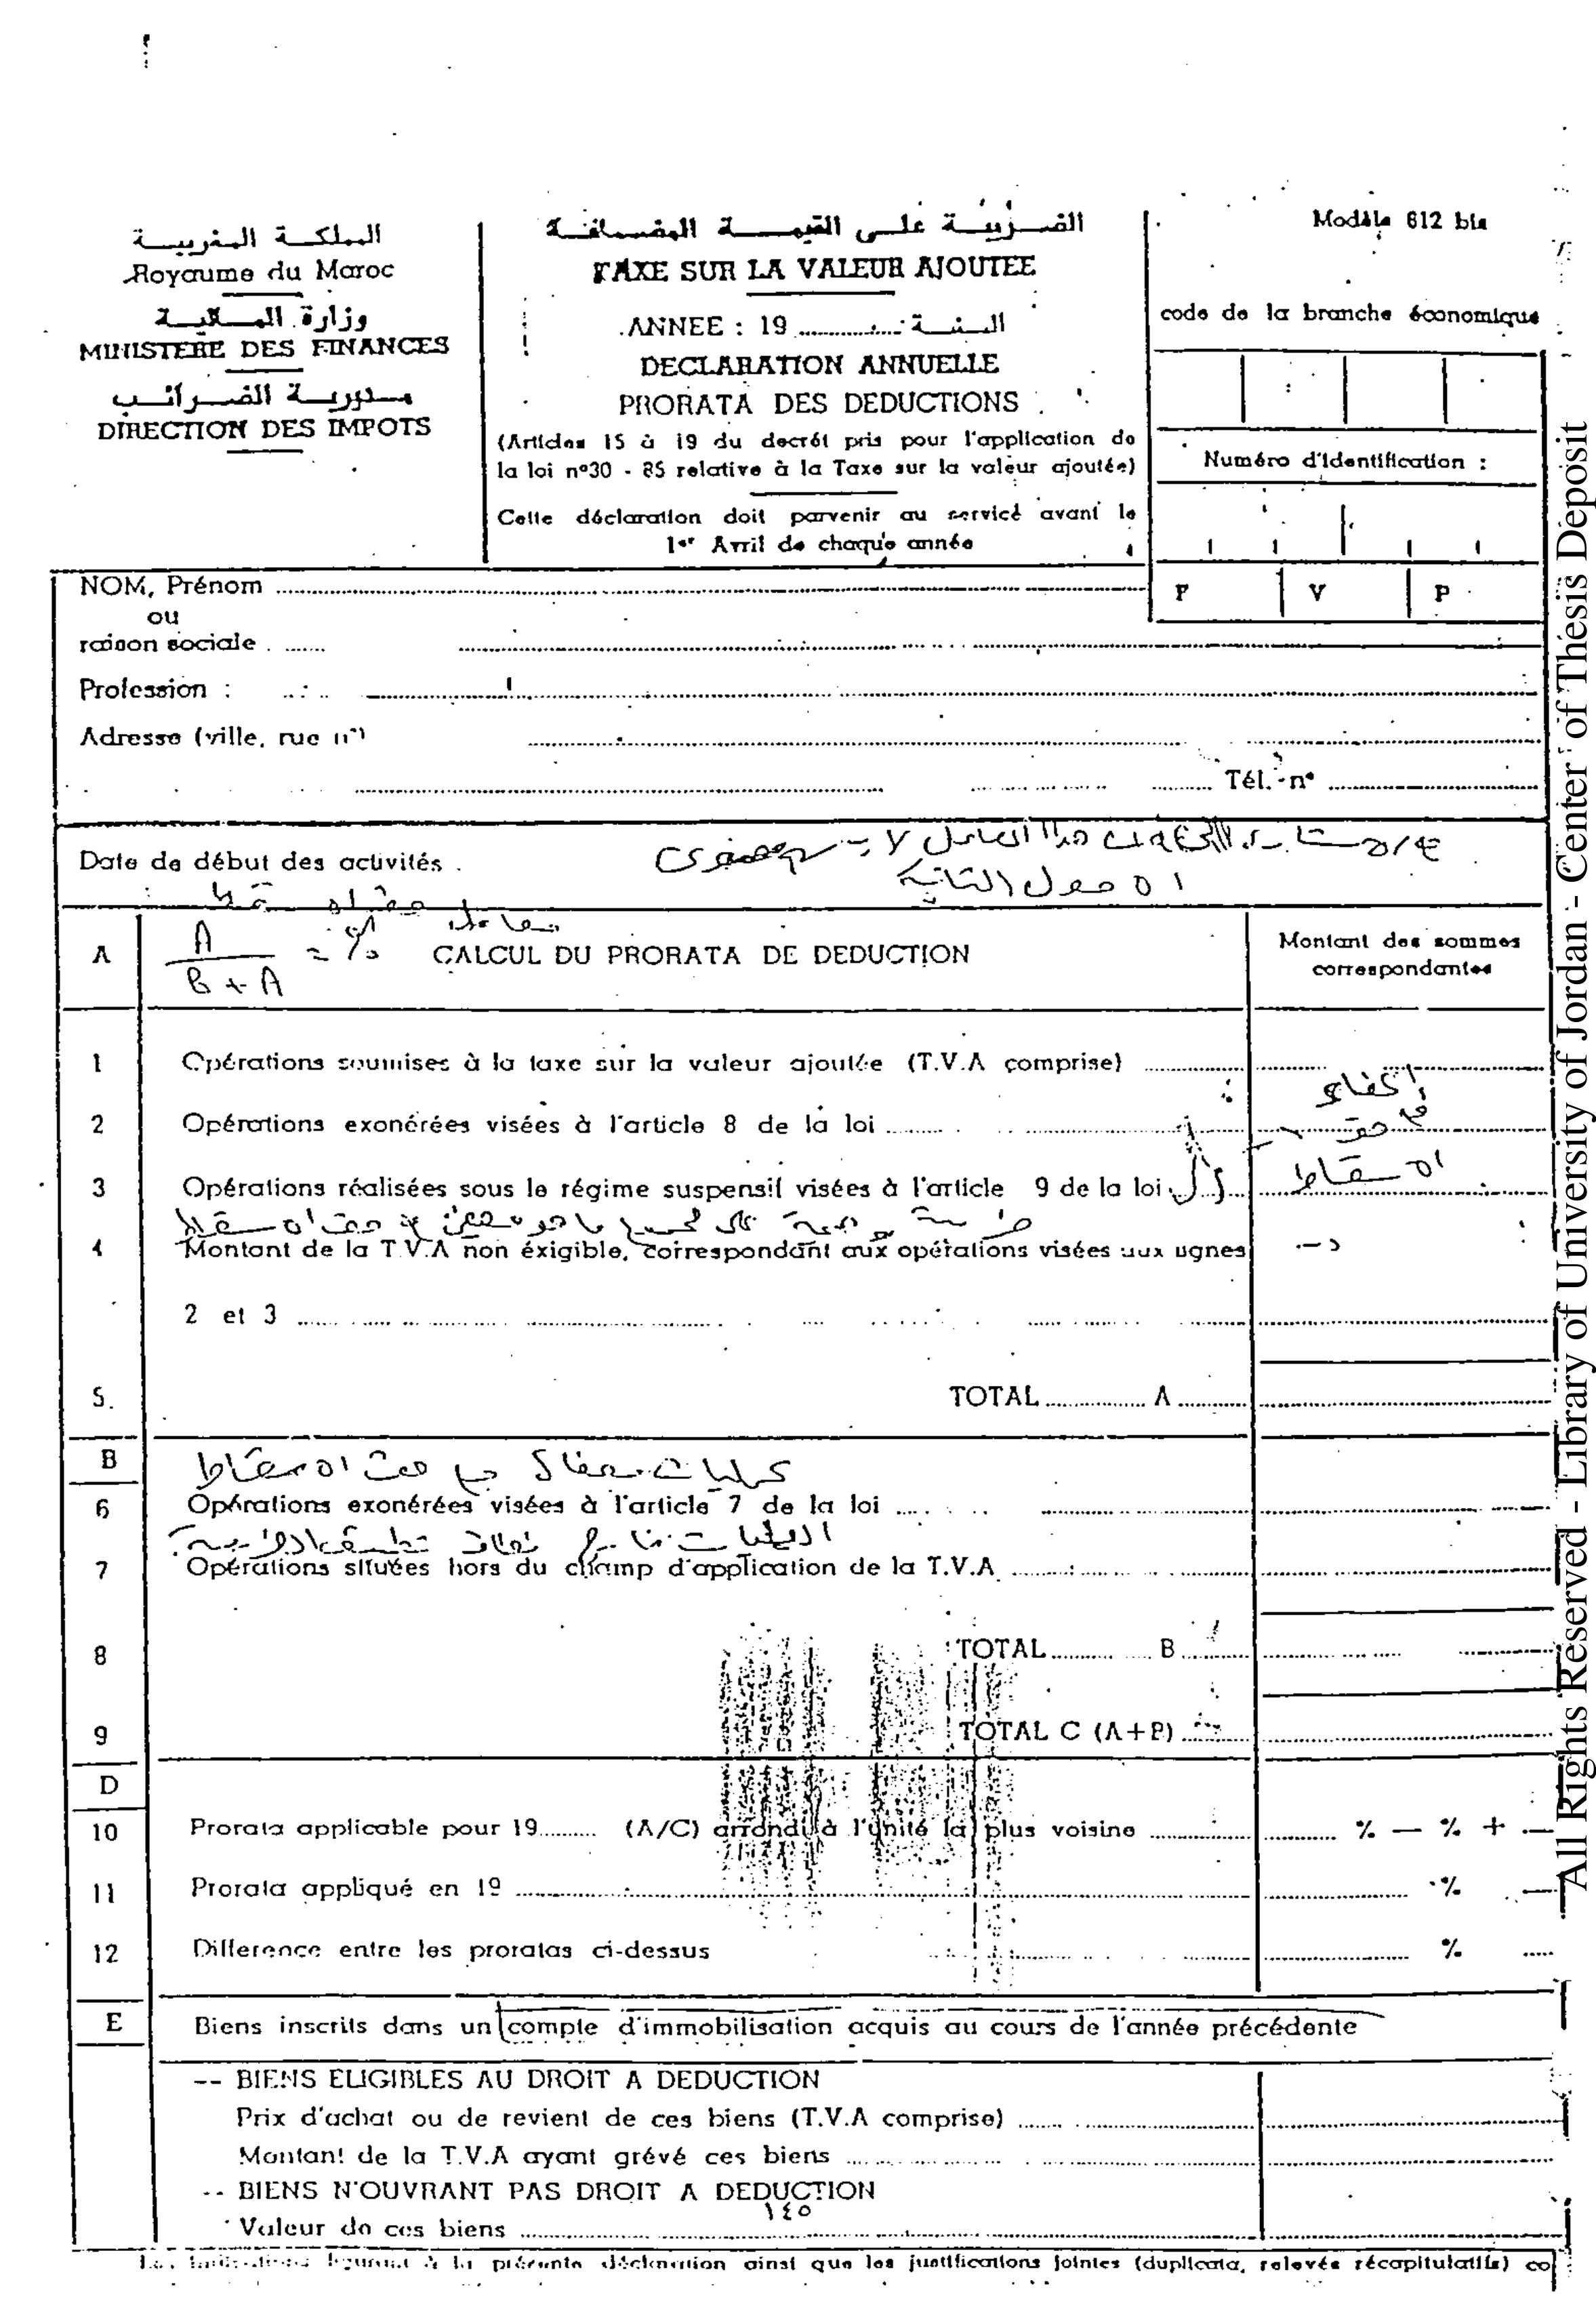 المملكة المغربية
Royaume du Maroc
وزارة المالية
MINISTERE DES FINANCES
مديرية الضرائب
DIRECTION DES IMPOTS
الضريبة على القيمة المضافة
TAXE SUR LA VALEUR AJOUTEE
ANNEE : 19 ............ السنة
DECLARATION ANNUELLE
PRORATA DES DEDUCTIONS
(Articles 15 à 19 du decrét pris pour l'application de
la loi nº30 - 85 relative à la Taxe sur la valeur ajoutée)
Cette déclaration doit parvenir au service avant le
1er Avril de chaque année
Modèle 612 bis
code de la branche économique
Numéro d'identification :
F V P
NOM, Prénom
ou
raison sociale
Profession :
Adresse (ville, rue nº)
Tél. nº
Date de début des activités
A
A / B + A = %
CALCUL DU PRORATA DE DEDUCTION
Montant des sommes
correspondantes
1 Opérations soumises à la taxe sur la valeur ajoutée (T.V.A comprise)
2 Opérations exonérées visées à l'article 8 de la loi
3 Opérations réalisées sous le régime suspensif visées à l'article 9 de la loi
4 Montant de la T.V.A non éxigible, correspondant aux opérations visées aux lignes
2 et 3
5. TOTAL A
B
6 Opérations exonérées visées à l'article 7 de la loi
7 Opérations situées hors du champ d'application de la T.V.A
8 TOTAL B
9 TOTAL C (A+B)
D
10 Prorata applicable pour 19 (A/C) arrondi à l'unité la plus voisine % — % +
11 Prorata appliqué en 19 %
12 Difference entre les proratas ci-dessus %
E Biens inscrits dans un compte d'immobilisation acquis au cours de l'année précédente
-- BIENS ELIGIBLES AU DROIT A DEDUCTION
Prix d'achat ou de revient de ces biens (T.V.A comprise)
Montant de la T.V.A ayant grévé ces biens
-- BIENS N'OUVRANT PAS DROIT A DEDUCTION
١٤٥
Valeur de ces biens
figurant à la présente déclaration ainsi que les justifications jointes (duplicata, relevés récapitulatifs) co
All Rights Reserved - Library of University of Jordan - Center of Thesis Deposit